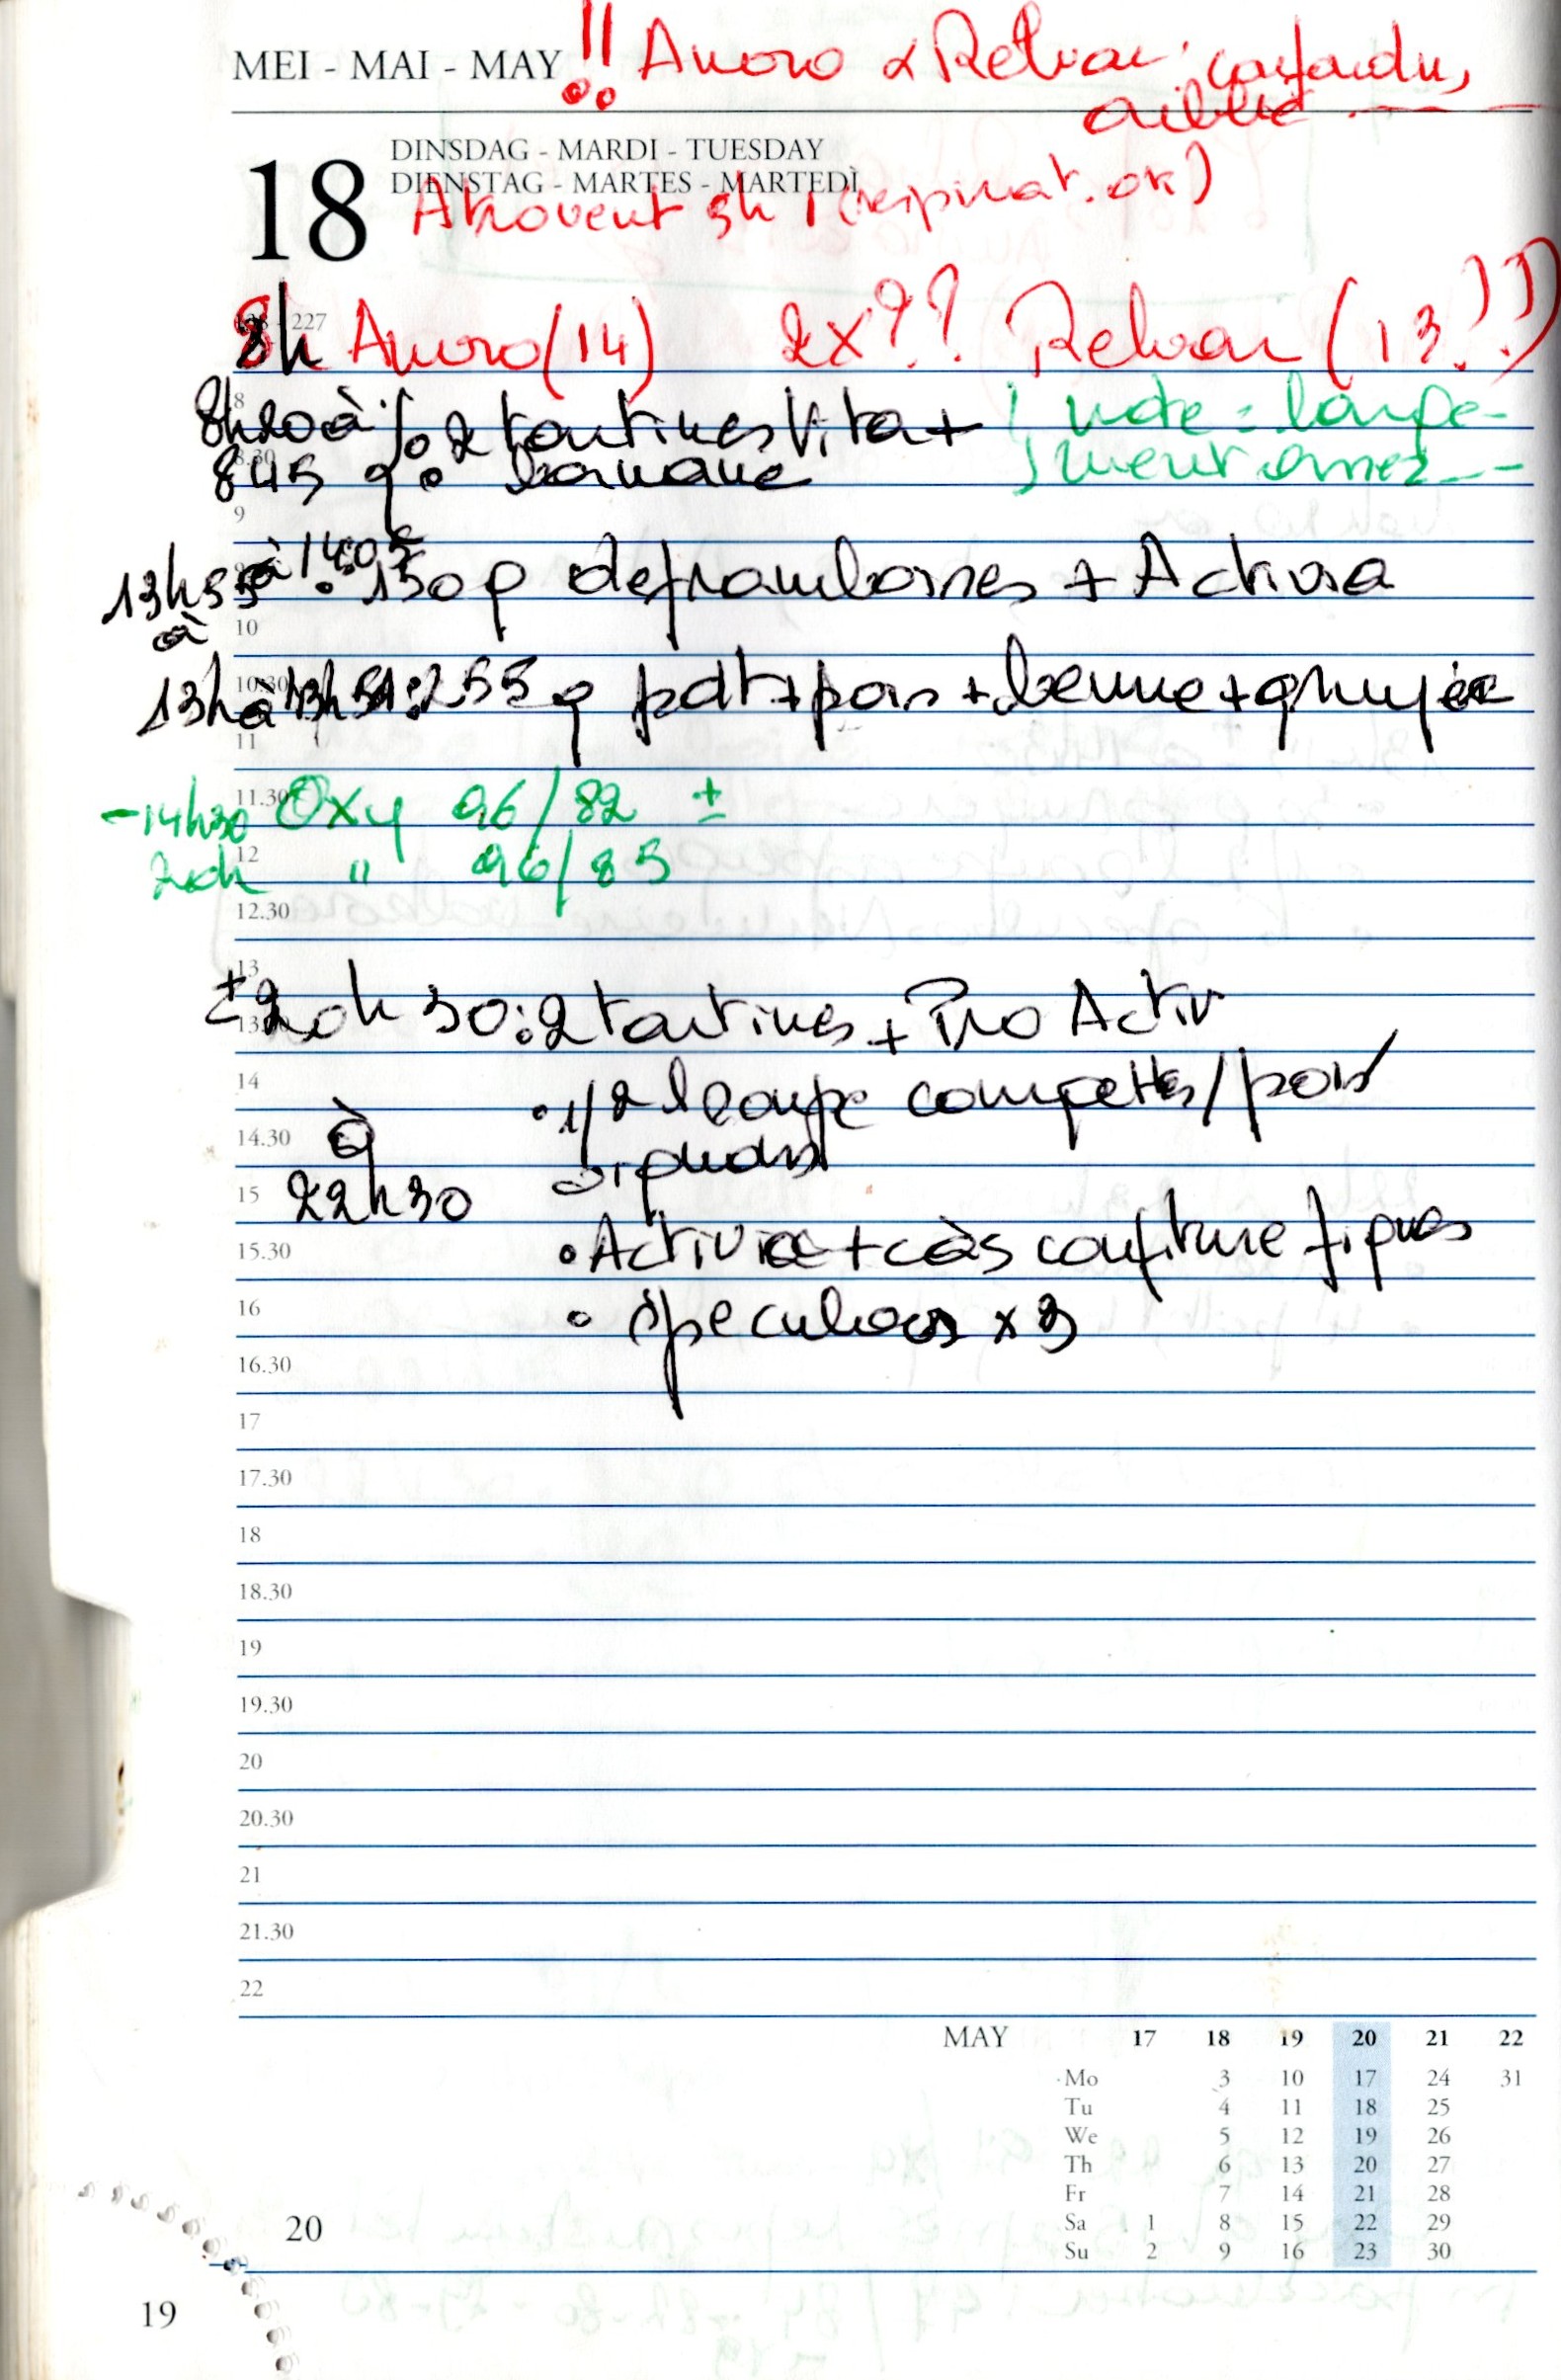 MEI - MAI - MAY !! Anoro & Relvar confondu,
oublié
DINSDAG - MARDI - TUESDAY
DIENSTAG - MARTES - MARTEDÌ
18
Atrovent 5h 1 (respirat. ok)
138 - 227
8h Anoro (14) 2x?? Relvar (13??)
8
8h20 à : 2 tartines Vita +
8.30
845 banane
note = longue-
ment assez --
9
13h55 à 14.05 : 150 g de framboises + Activia
à
10
10.30
13h à 13h51 : 255 g pdt + pois + beurre + gruyère
11
11.30
- 14h30 Oxy 96/82 ±
12
20h " 96/85
12.30
13
13.30
± 20h30 : 2 tartines + Pro Activ
14
• 1/2 l soupe courgettes/pois
14.30
à
15
22h30
15.30
• Activia + càs confiture figues
16
• speculoos x 3
16.30
17
17.30
18
18.30
19
19.30
20
20.30
21
21.30
22
MAY 17 18 19 20 21 22
Mo 3 10 17 24 31
Tu 4 11 18 25
We 5 12 19 26
Th 6 13 20 27
Fr 7 14 21 28
Sa 1 8 15 22 29
Su 2 9 16 23 30
20
19